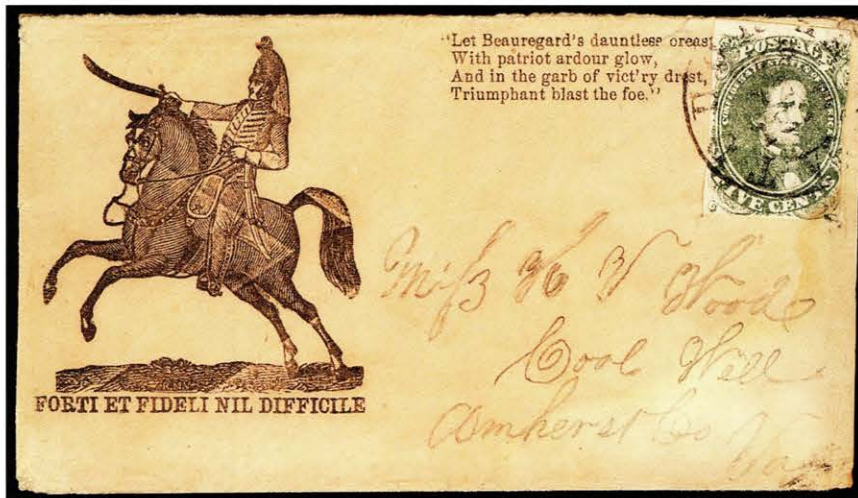 "Let Beauregard's dauntless breast
With patriot ardour glow,
And in the garb of vict'ry drest,
Triumphant blast the foe."
POSTAGE
CONFEDERATE STATES OF AMERICA
FIVE CENTS
FORTI ET FIDELI NIL DIFFICILE
Miss K V Wood
Cool Well
Amherst Co Va